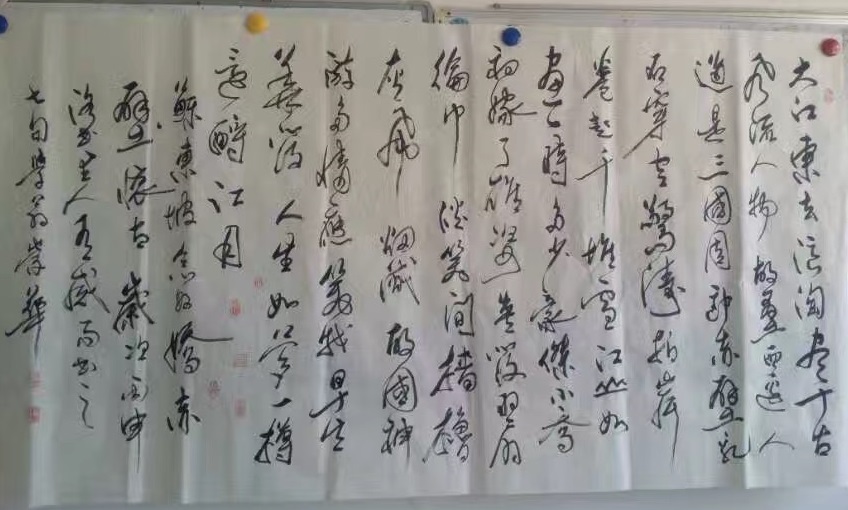 大江東去浪淘盡千古
風流人物故壘西邊人
道是三國周郎赤壁乱
石穿空驚濤拍岸
卷起千堆雪江山如
畫一時多少豪傑小喬
初嫁了雄姿英發羽扇
綸巾談笑間檣櫓
灰飛烟滅故國神
游多情應笑我早生
華髮人生如夢一樽
還酹江月
蘇東坡念奴嬌赤
壁懷古歲次丙申
人有感而书之
七旬學翁